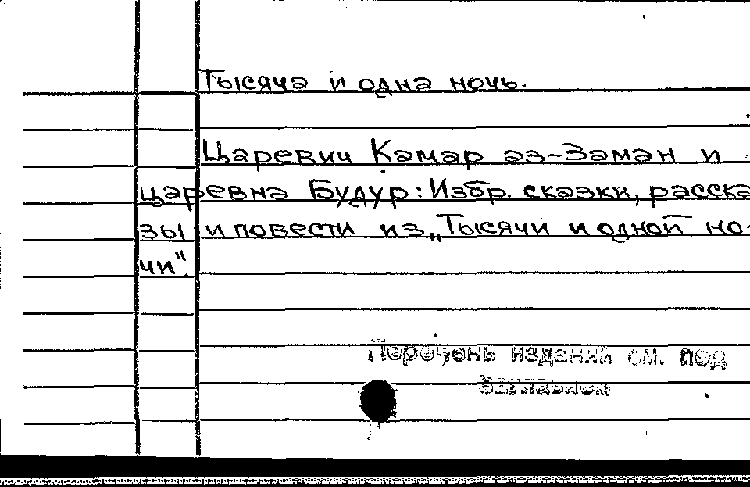 Тысяча и одна ночь.
Царевич Камар аз-Заман и
царевна Будур: Избр. сказки, расска
зы и повести из „Тысячи и одной но-
чи".
Перечень изданий см. под
заглавием